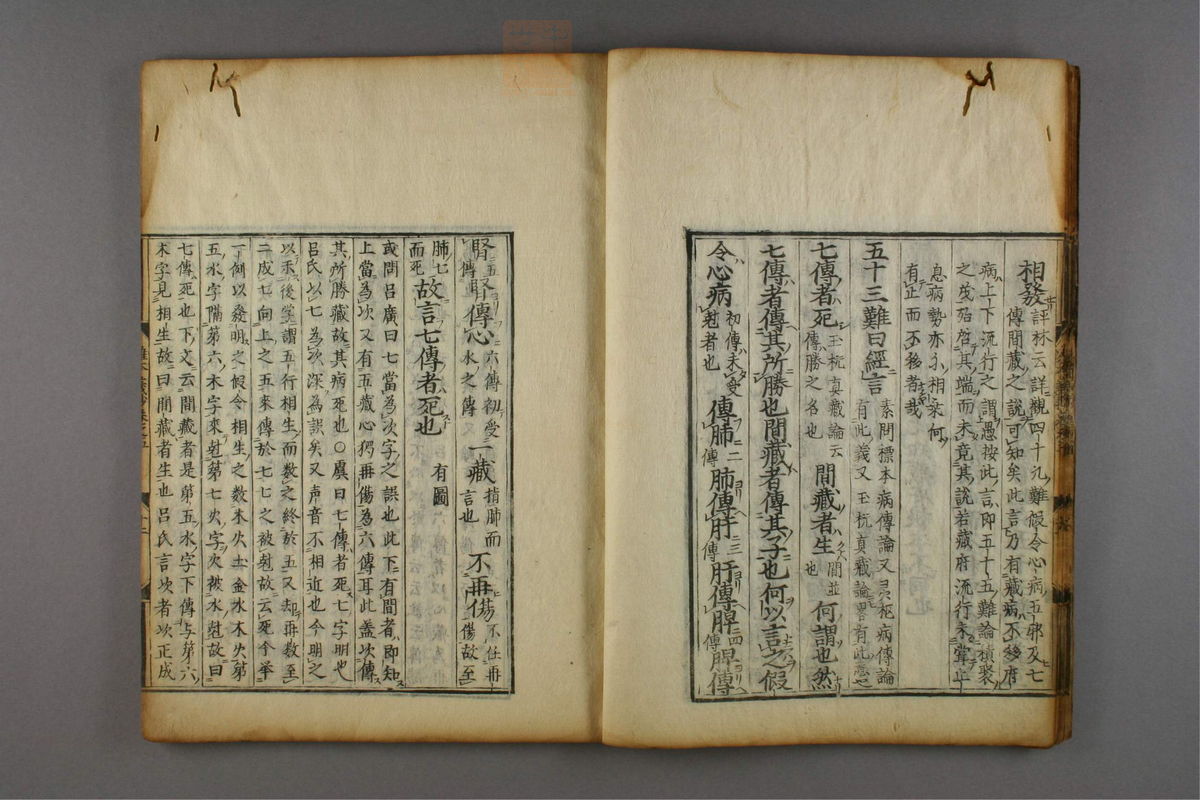 相發評林云詳觀四十九難假令心病五邪及七
傳間藏之說可知矣此言乃有藏病不移府
病上下流行之謂愚按此言即五十五難論積聚
之茂殆啓其端而未竟其說若藏府流行未嘗止
息病勢亦相何
有止而不移者哉
五十三難曰經言素問標本病傳論又灵枢病傳論
有此義又玉枕真藏論畧有此意
七傳者死玉枕真藏論云
傳勝之名也
間藏者生間並
也
何謂也然
七傳者傳其所勝也間藏者傳其子也何以言之假
令心病初傳未受
尅者也
傳肺二
傳
肺傳肝三
傳
肝傳脾四
傳
脾傳
腎五
傳
腎傳心六傳初受
水之傳
一藏指肺而
言也
不再傷不任再
傷故至
肺七
而死
故言七傳者死也有圖
或問呂廣曰七當為次字之誤也此下有間者即知
上當為次又有五藏心獨再傷為六傳耳此盖次傳
其所勝藏故其病死也〇虞曰七傳者死七字明也
呂氏以七為次深為誤矣又声音不相近也今明之
以示後學謂五行相生而数之終於五又却再数至
二成七向上之五來傳於七七之被尅故云死今举
一例以發明之假令相生之数木火土金水木火第
五水字隔第六木字來尅第七火字火被水尅故曰
七傳死也下文云間藏者是第五水字下傳与第六
木字見相生故曰間藏者生也呂氏言次者次正成